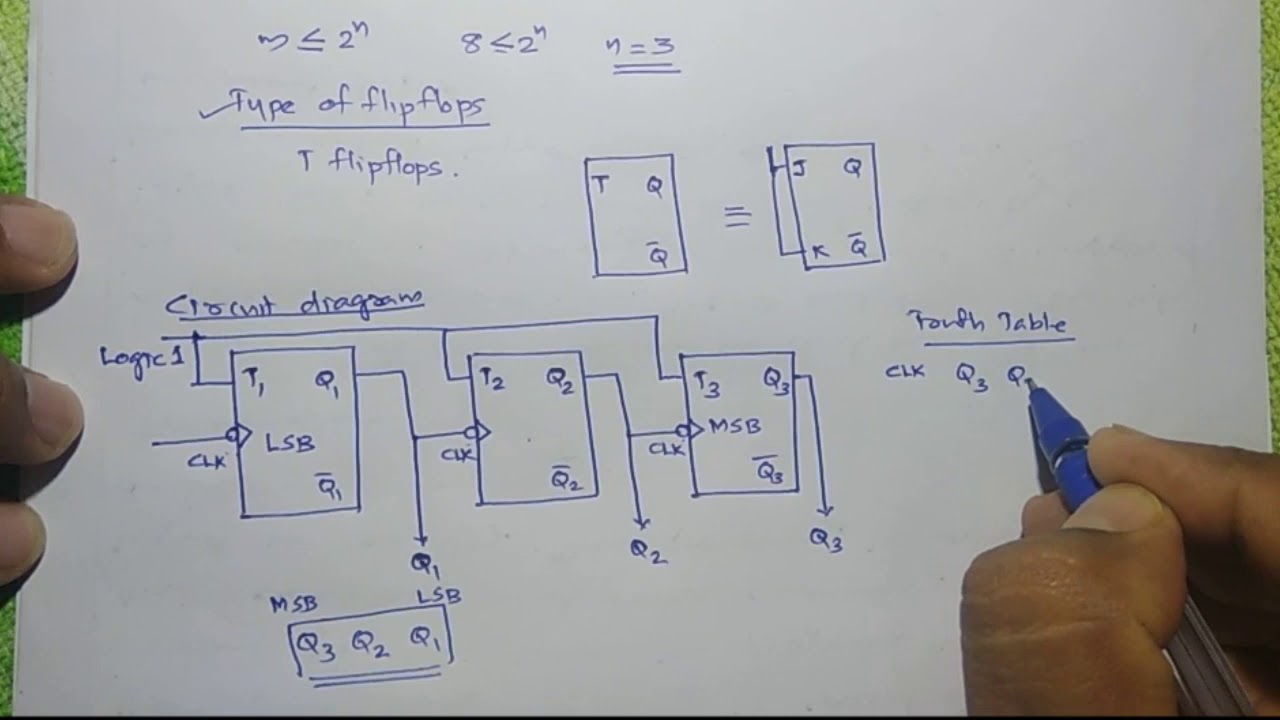 m ≤ 2ⁿ 8 ≤ 2ⁿ n = 3
Type of flipflops
T flipflops.
T Q
Q̅
≡
J Q
K Q̅
Circuit diagram
Logic 1
T₁ Q₁
CLK LSB
Q̅₁
T₂ Q₂
CLK
Q̅₂
T₃ Q₃
CLK MSB
Q̅₃
Q₁
Q₂
Q₃
MSB LSB
Q₃ Q₂ Q₁
Table
CLK Q₃ Q